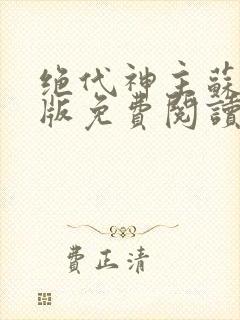 绝代神主蘇
版免費閱讀
費正清